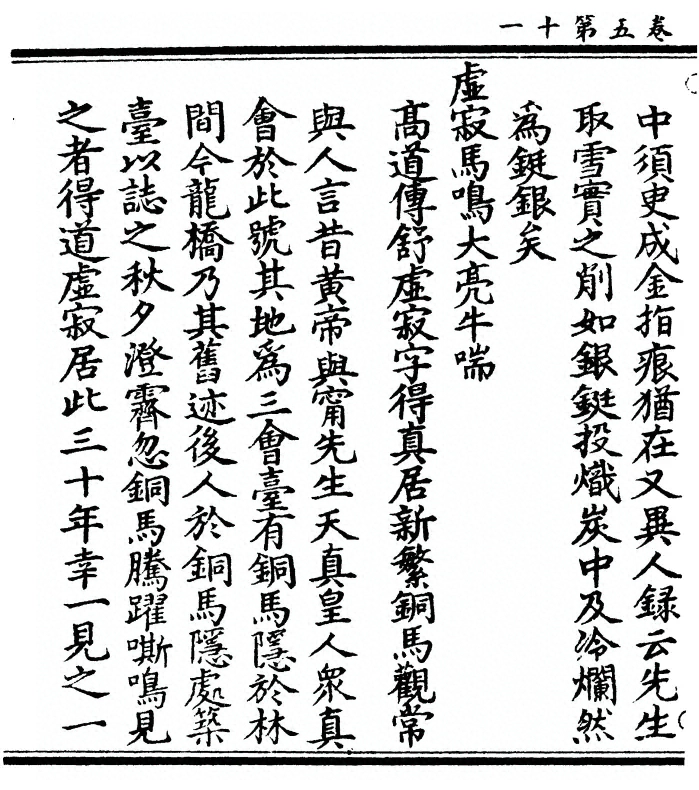 卷五第十一
中須臾成金指痕猶在又異人録云先生
取雪實之削如銀鋌投熾炭中及冷爛然
為鋌銀矣
虛寂馬鳴大亮牛喘
髙道傳舒虛寂字得真居新繁銅馬觀常
與人言昔黄帝與甯先生天真皇人衆真
會於此號其地爲三會臺有銅馬隱於林
間今龍橋乃其舊迹後人於銅馬隱處築
臺以誌之秋夕澄霽忽銅馬騰躍嘶鳴見
之者得道虛寂居此三十年幸一見之一